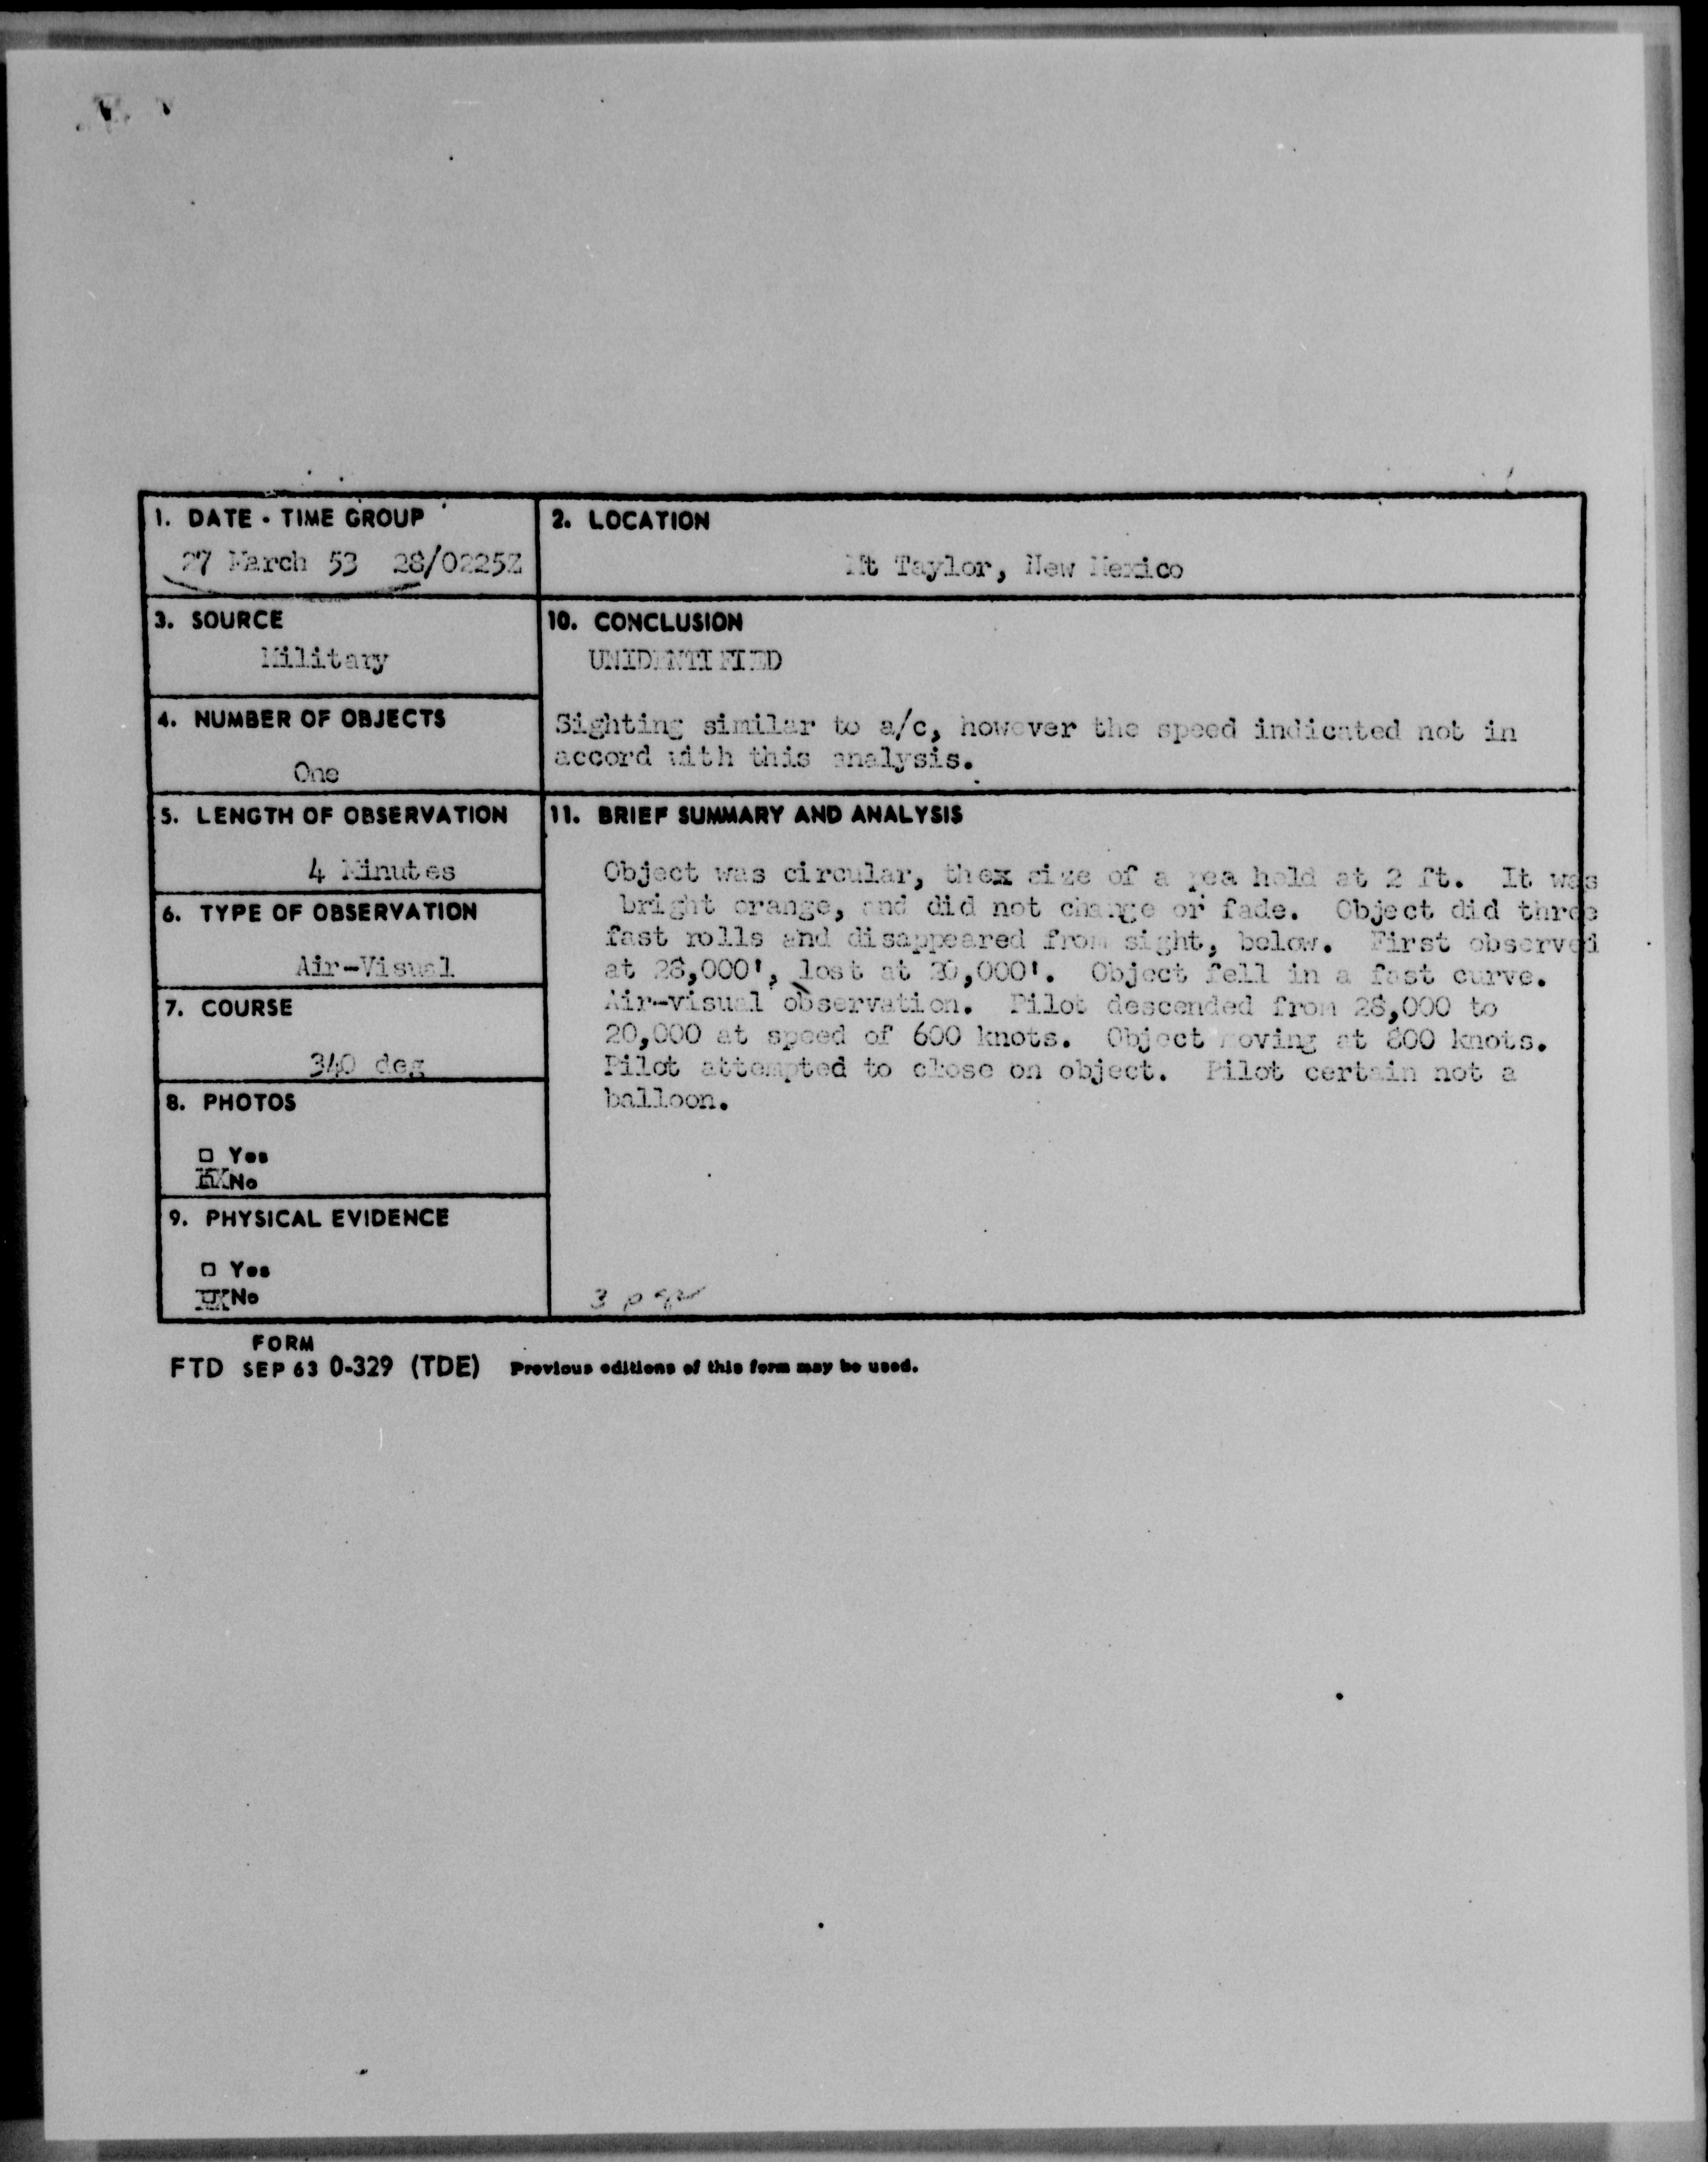 1. DATE - TIME GROUP
27 March 53 28/0225Z
2. LOCATION
Mt Taylor, New Mexico
3. SOURCE
Military
10. CONCLUSION
UNIDENTIFIED
Sighting similar to a/c, however the speed indicated not in
accord with this analysis.
4. NUMBER OF OBJECTS
One
5. LENGTH OF OBSERVATION
4 Minutes
11. BRIEF SUMMARY AND ANALYSIS
Object was circular, thex size of a pea held at 2 ft. It was
bright orange, and did not change or fade. Object did three
fast rolls and disappeared from sight, below. First observed
at 28,000', lost at 20,000'. Object fell in a fast curve.
Air-visual observation. Pilot descended from 28,000 to
20,000 at speed of 600 knots. Object moving at 800 knots.
Pilot attempted to close on object. Pilot certain not a
balloon.
6. TYPE OF OBSERVATION
Air-Visual
7. COURSE
340 deg
8. PHOTOS
Yes
No
9. PHYSICAL EVIDENCE
Yes
No
FORM
FTD SEP 63 0-329 (TDE) Previous editions of this form may be used.